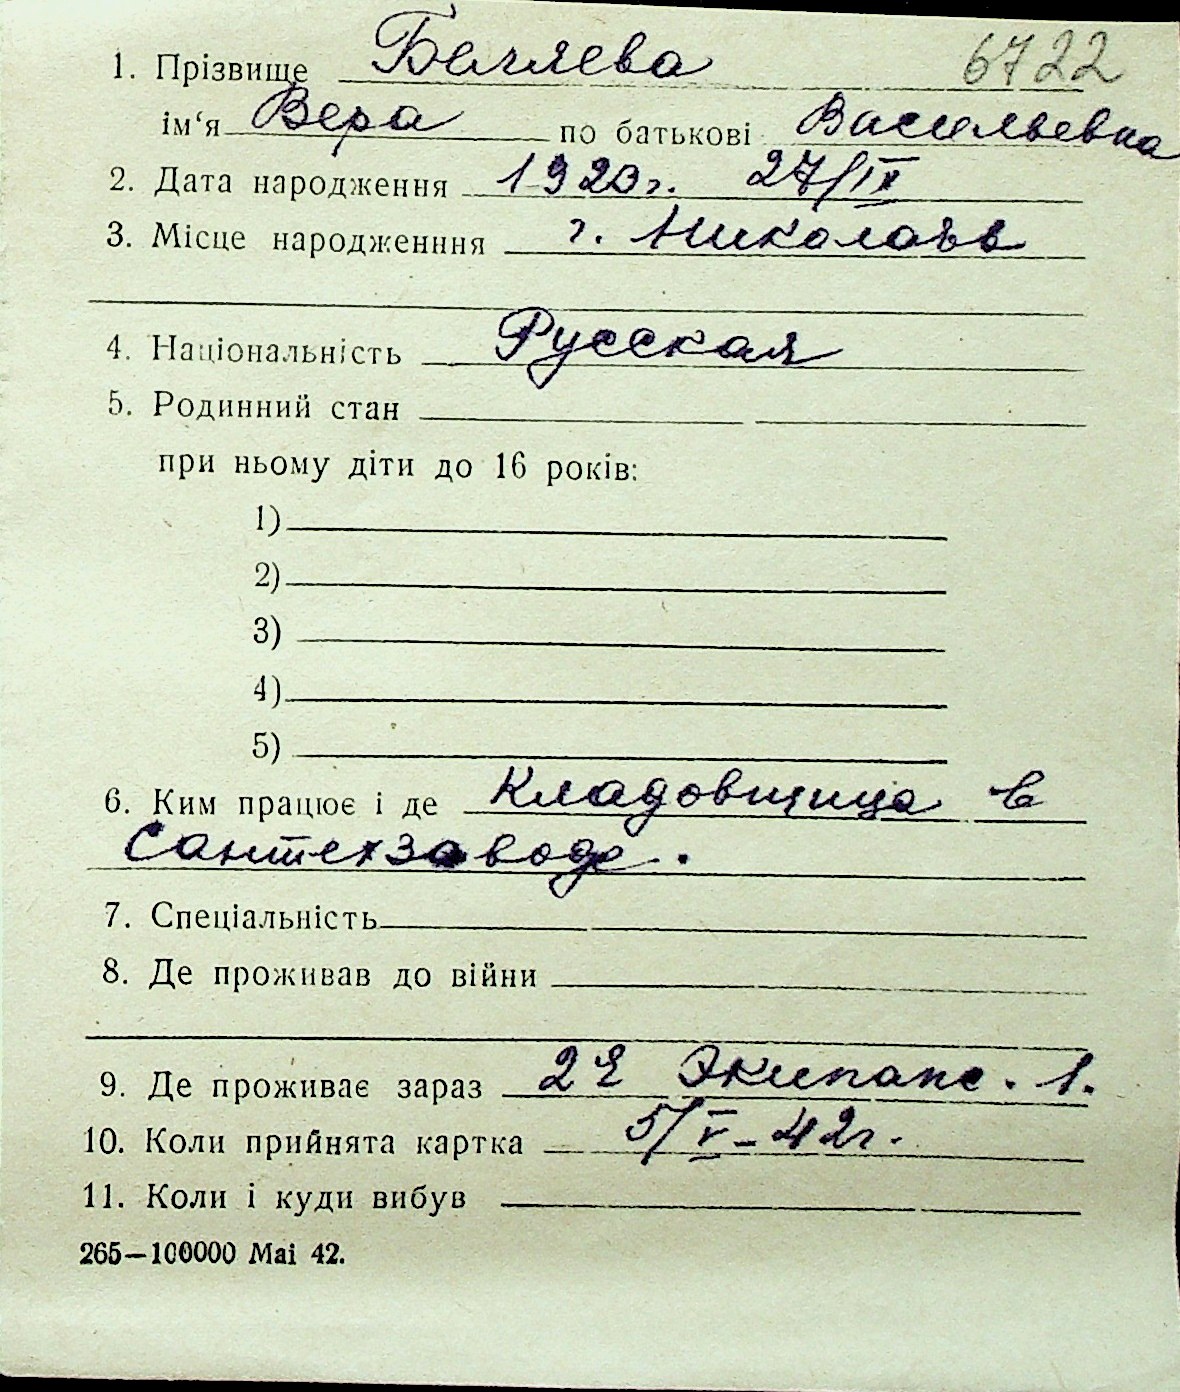 1. Прізвище Беляева 6722
ім‘я Вера по батькові Васильевна
2. Дата народження 1923г. 27/IX
3. Місце народженння г. Николаев
4. Національність Русская
5. Родинний стан
при ньому діти до 16 років:
1)
2)
3)
4)
5)
6. Ким працює і де Кладовщица в
Сантехзаводе.
7. Спеціальність
8. Де проживав до війни
9. Де проживає зараз 2я Экипаже. 1.
10. Коли прийнята картка 5/V-42г.
11. Коли і куди вибув
265—100000 Mai 42.